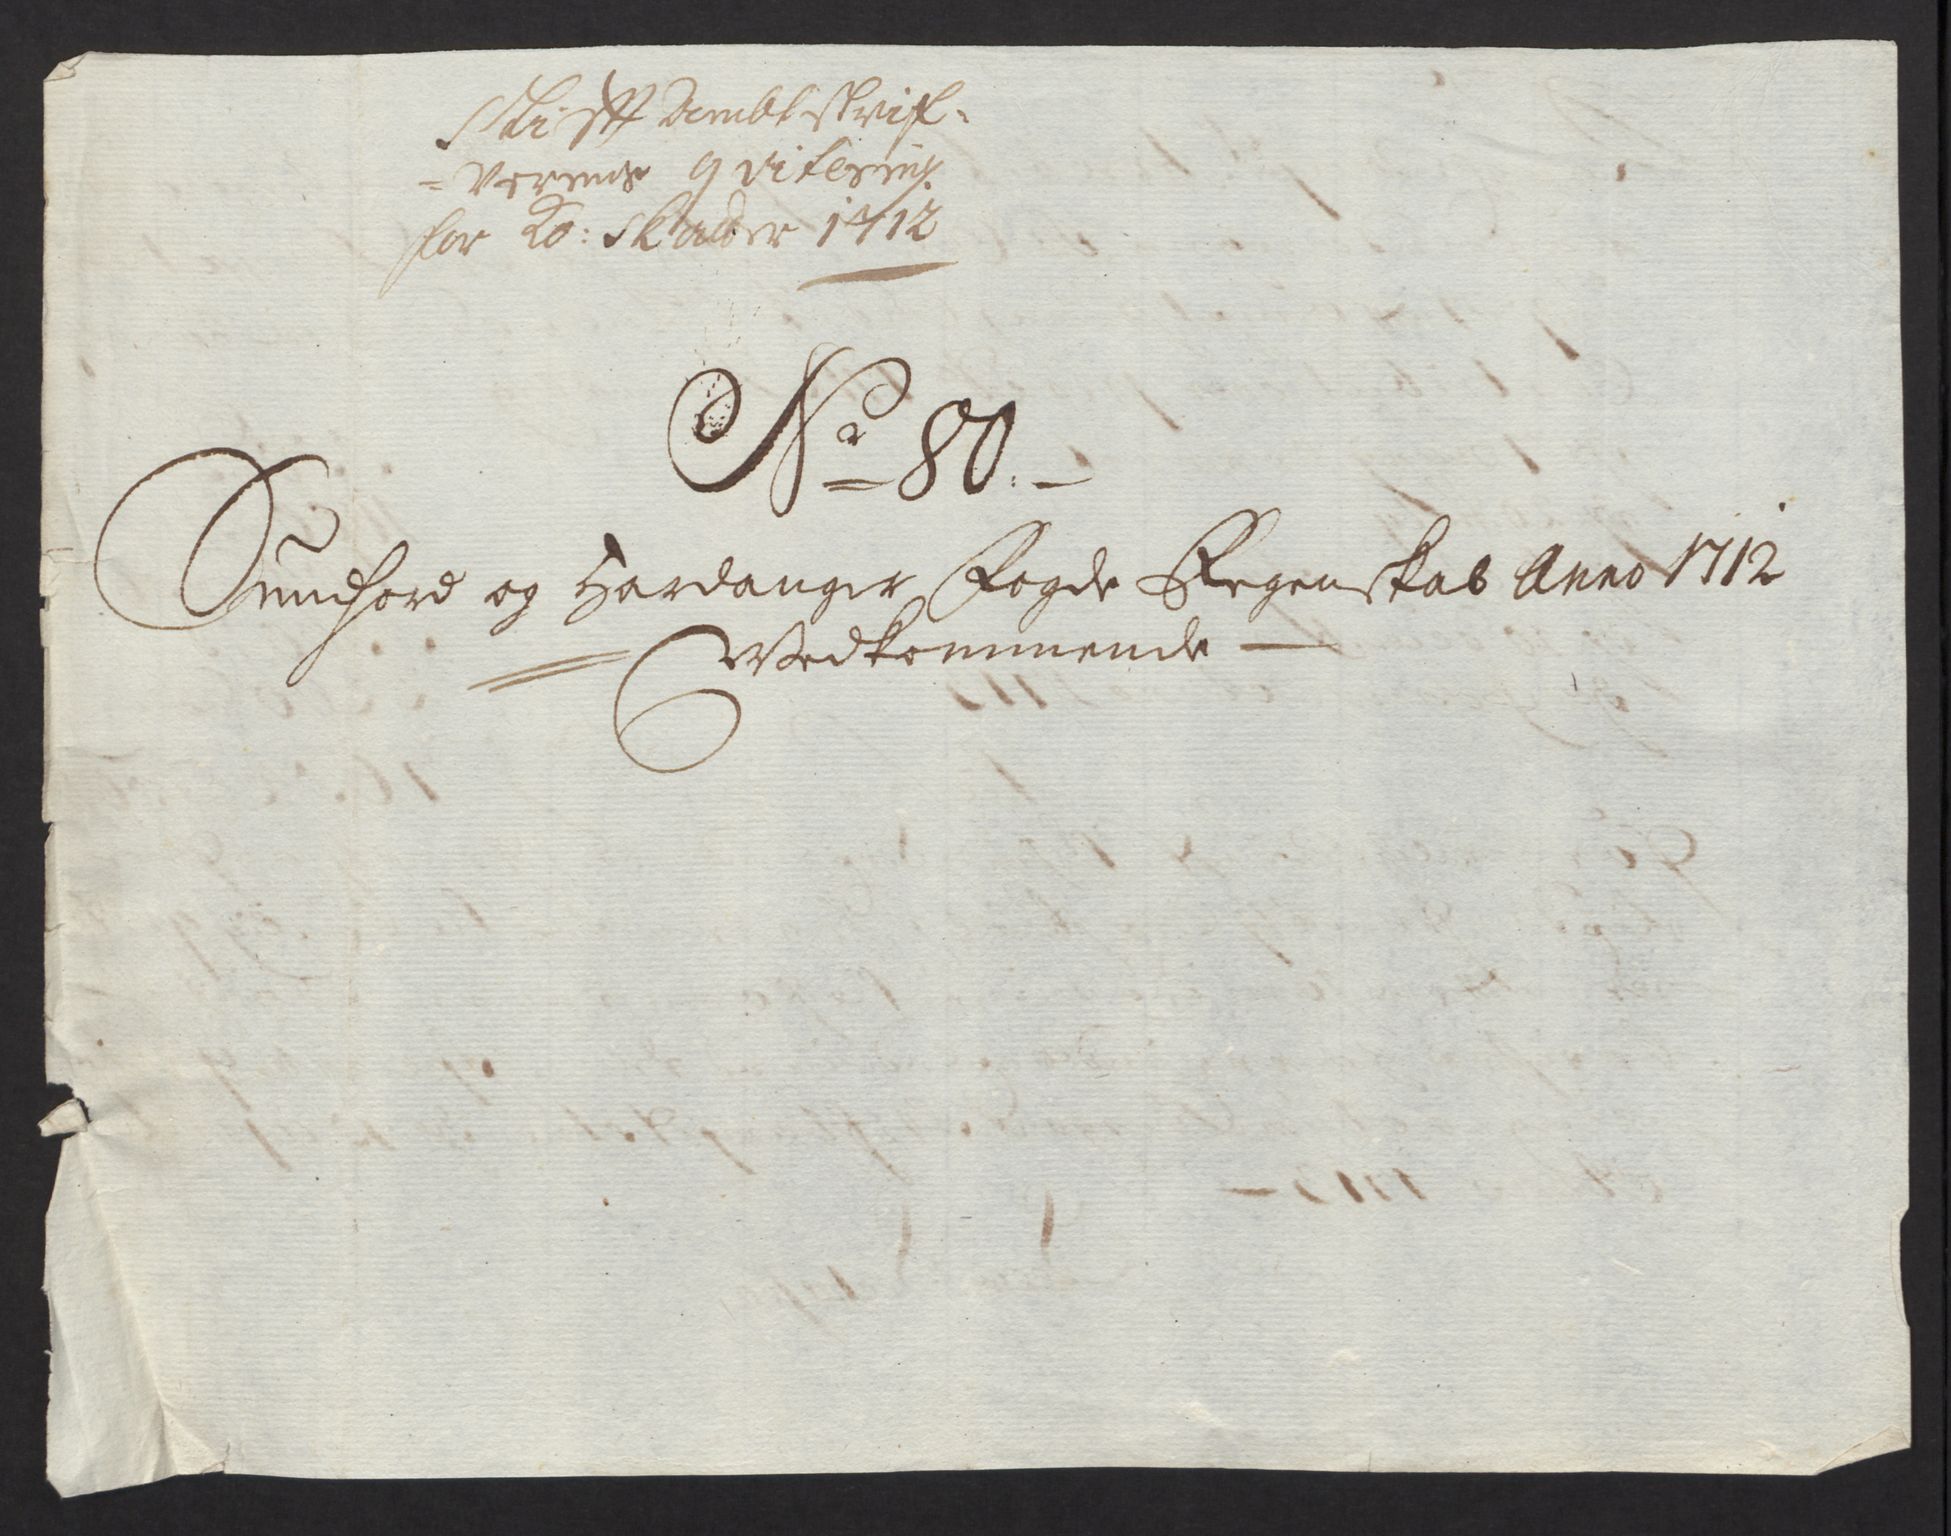 Stifft Ambtskrif-
=verens qvitering
for Ko: Skatter 1712
No 80.
Sundhord og Hardanger Fogde Regenskab Anno 1712
Vedkommende